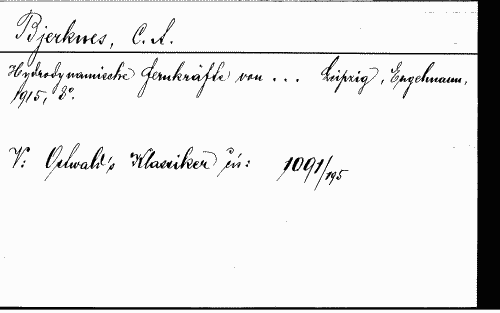 Bjerknes, C. A.
Hydrodynamische Fernkräfte von ... Leipzig, Engelmann,
1915, 8°.
V: Ostwald's Klassiker čís: 1091/195